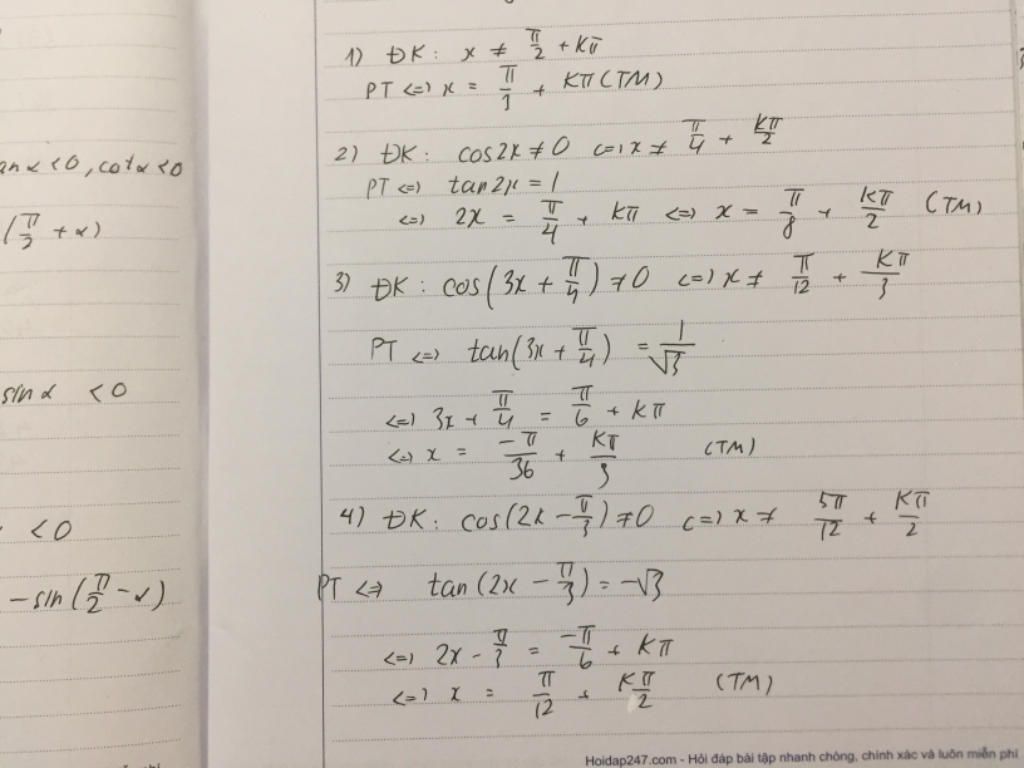 anα <0, cotα <0
(π/3 + α)
sinα <0
<0
-sin(π/2 - α)
1) ĐK: x ≠ π/2 + Kπ
PT <=> x = π/3 + Kπ (TM)
2) ĐK: cos2x ≠ 0 <=> x ≠ π/4 + Kπ/2
PT <=> tan2x = 1
<=> 2x = π/4 + Kπ <=> x = π/8 + Kπ/2 (TM)
3) ĐK: cos(3x + π/4) ≠ 0 <=> x ≠ π/12 + Kπ/3
PT <=> tan(3x + π/4) = 1/√3
<=> 3x + π/4 = π/6 + Kπ
<=> x = -π/36 + Kπ/3 (TM)
4) ĐK: cos(2x - π/3) ≠ 0 <=> x ≠ 5π/12 + Kπ/2
PT <=> tan(2x - π/3) = -√3
<=> 2x - π/3 = -π/6 + Kπ
<=> x = π/12 + Kπ/2 (TM)
Hoidap247.com - Hỏi đáp bài tập nhanh chóng, chính xác và luôn miễn phí